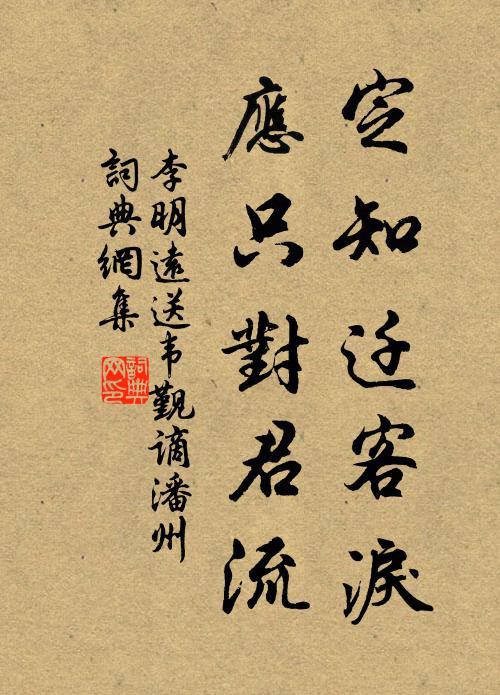 定知迁客淚
應只對君流
李明遠送韦觐谪潘州
詞典網集
詞典
网印